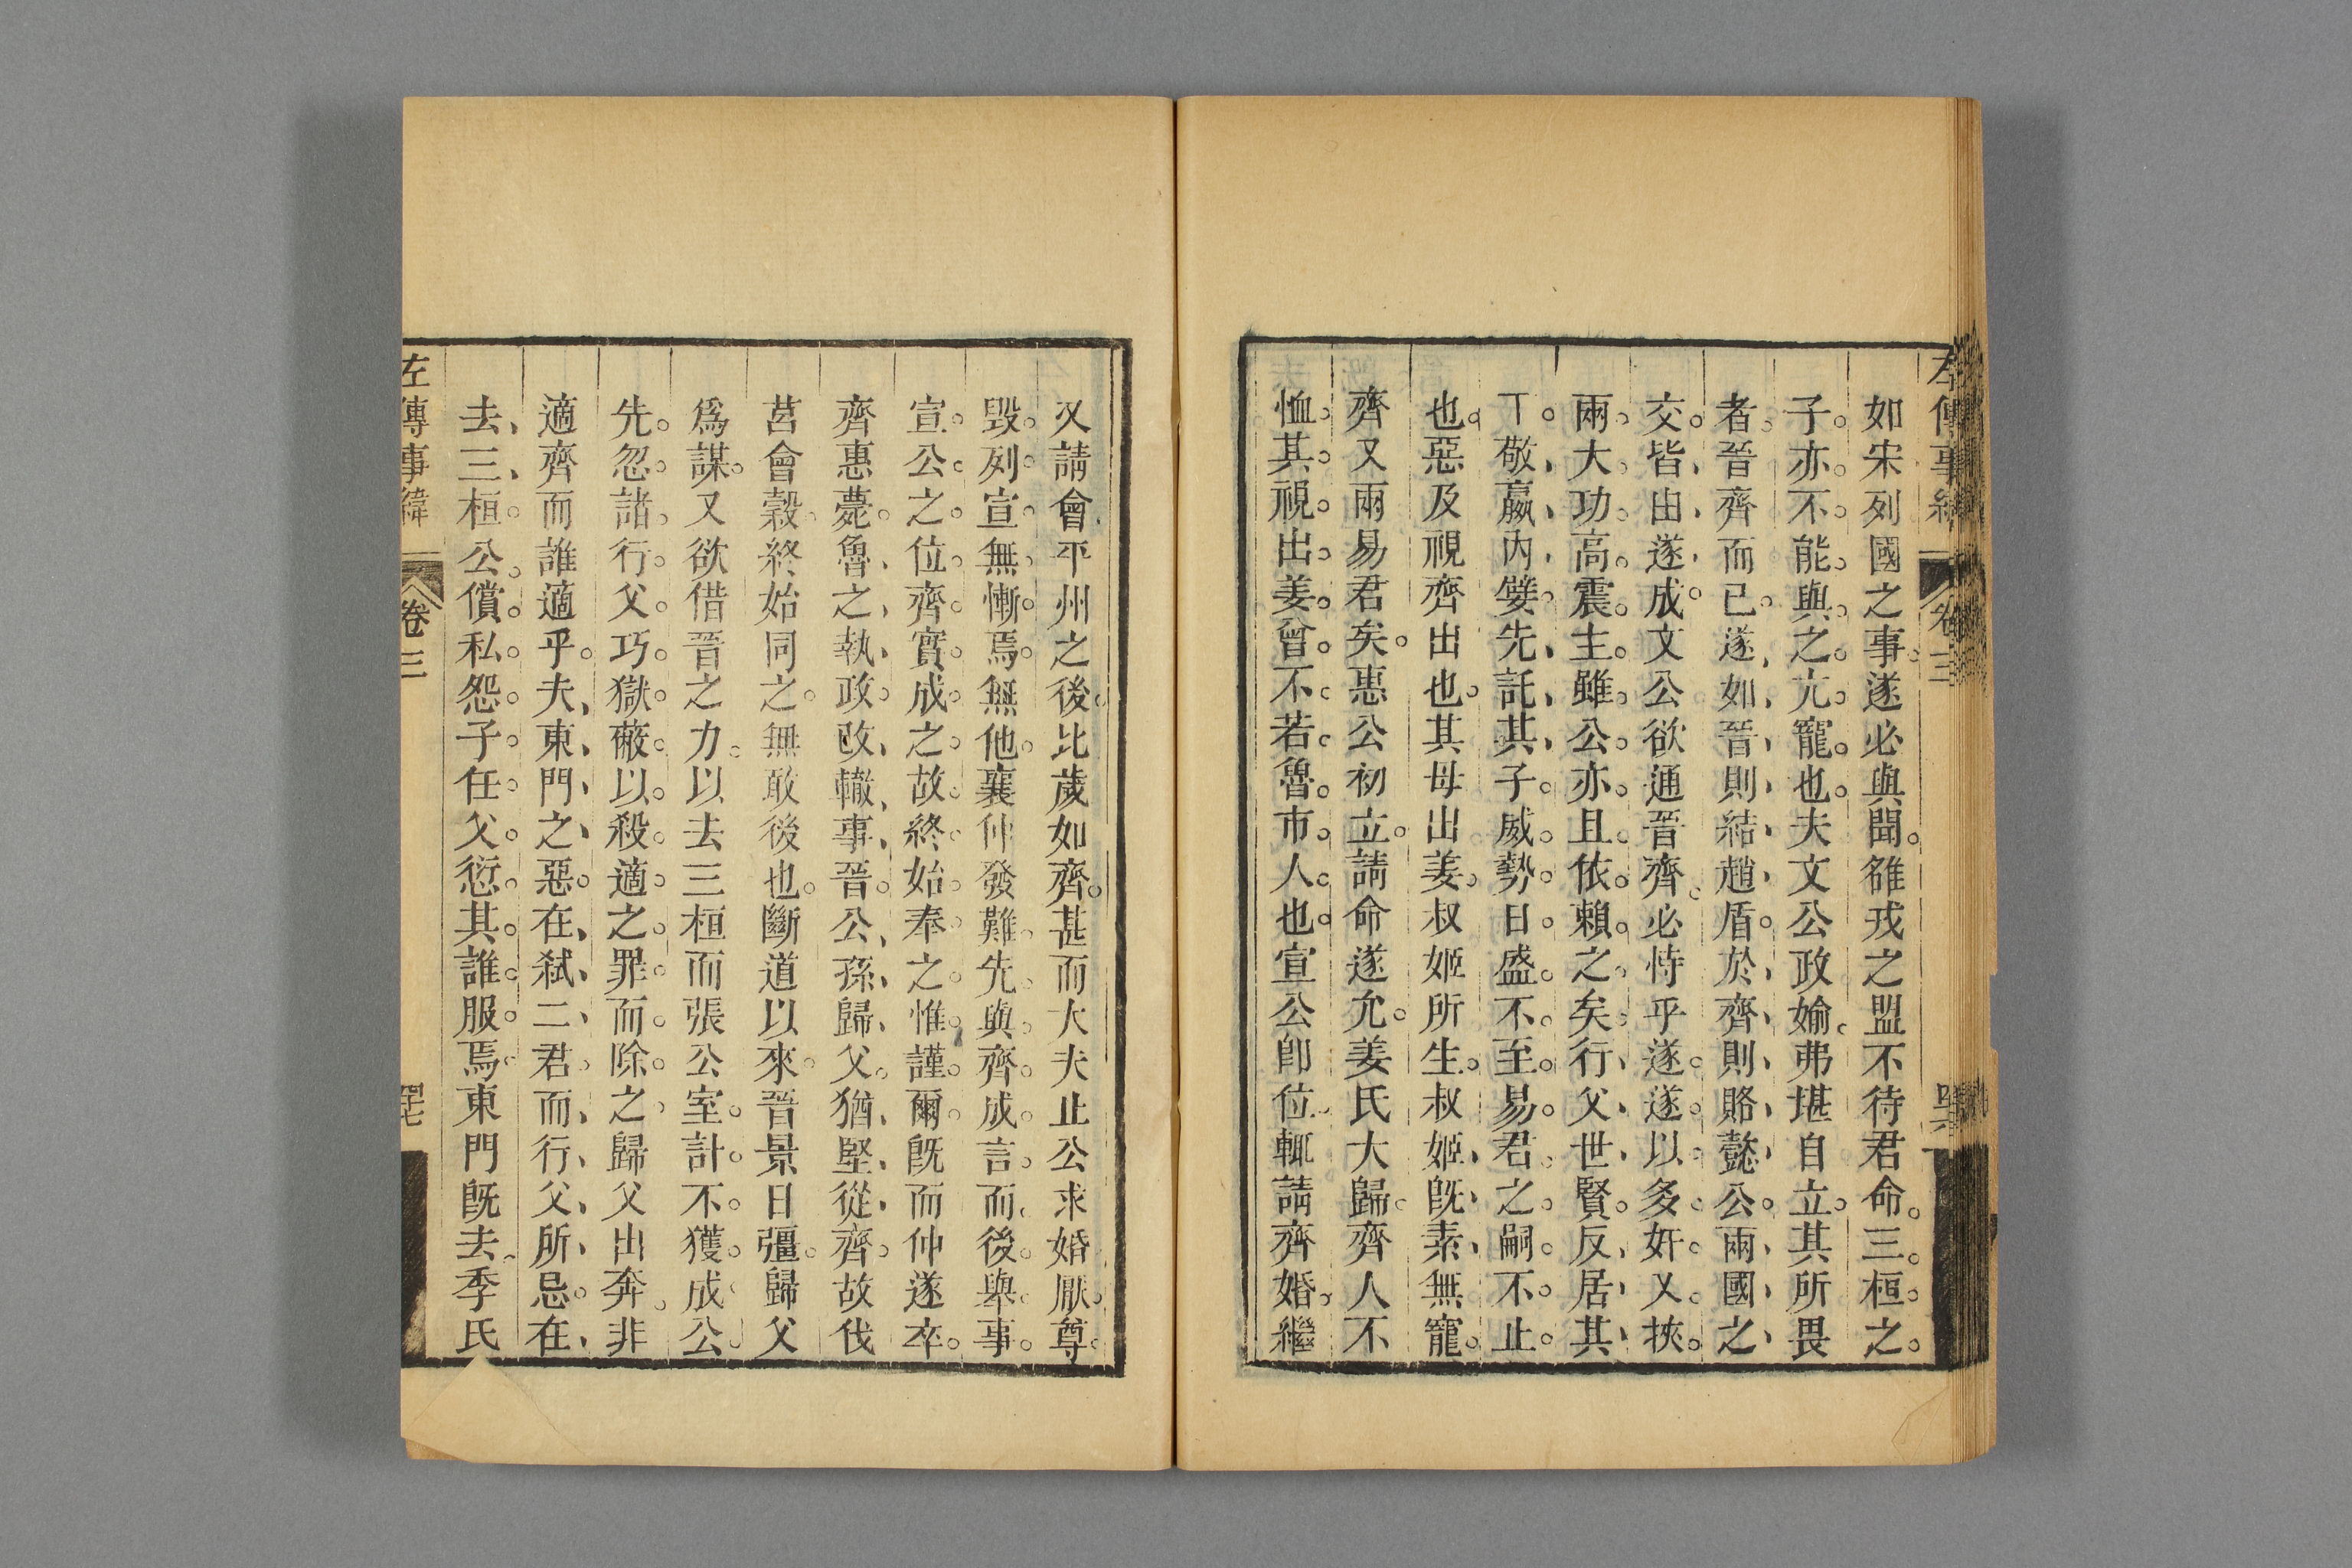 左傳事緯 卷三
如宋列國之事遂必與聞雒戎之盟不待君命三桓之
子亦不能與之亢寵也夫文公政媮弗堪自立其所畏
者晉齊而已遂如晉則結趙盾於齊則賂懿公兩國之
交皆由遂成文公欲通晉齊必恃乎遂遂以多奸又挾
兩大功高震主雖公亦且依賴之矣行父世賢反居其
丅敬嬴內嬖先託其子威勢日盛不至易君之嗣不止
也惡及視齊出也其母出姜叔姬所生叔姬旣素無寵
齊又兩易君矣惠公初立請命遂允姜氏大歸齊人不
恤其視出姜曾不若魯市人也宣公卽位輒請齊婚繼
又請會平州之後比歲如齊甚而大夫止公求婚厭尊
毀列宣無慚焉無他襄仲發難先與齊成言而後舉事
宣公之位齊實成之故終始奉之惟謹爾旣而仲遂卒
齊惠薨魯之執政改轍事晉公孫歸父猶堅從齊故伐
莒會穀終始同之無敢後也斷道以來晉景日彊歸父
爲謀又欲借晉之力以去三桓而張公室計不獲成公
先忽諸行父巧獄蔽以殺適之罪而除之歸父出奔非
適齊而誰適乎夫東門之惡在弑二君而行父所忌在
去三桓公償私怨子任父愆其誰服焉東門旣去季氏
左傳事緯 卷三